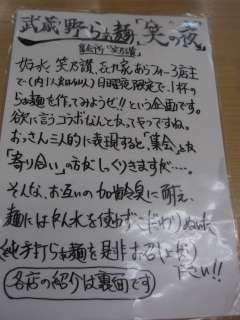 武蔵野らぁ麺「笑の夜」
集会所"笑乃讃"
好水、笑乃讃、
あらフォー3店主
で(内1人
日曜夜限定で、1杯の
らぁ麺を作ってみようぜ!!という企画です。
俗に言うコラボなんとかってやつですね。
おっさん三人的に表現すると「集会」とか
「寄り合い」の方がしっくりきますが…。
そんな、お互いの加齢臭に耐え、
麺にはかん水を使わず、こだわりぬいた
純手打らぁ麺を是非お召し上がり
下さい!!
各店の紹介は裏面です